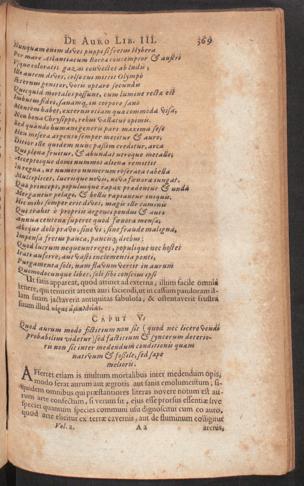 DE AURO LIB. III. 369
Nunquam enim dives puppis fretus Hybera
Per mare Atlantiacum flores contempsor & austri
Vique colorati gazas convectes ab Indis,
Ille autem dives, celso cui mittit Olympo
Æternus genitor, votis optare secundis
Quicquid mortales possunt, cum lumine rectæ est
fides, sanamq, in corpore sano
Mentem habet, externis etiam quæ commoda visa,
Non bona Chrysippo, rebus vallatus opimis.
Sed quando humani generis pars maxima sese
Non misera argento semper metitur & auro,
Ditior ille quidem nunc passim creditur, arca
Quo plena fruitur, & abundat utroque metallo;
nummos aliena remittit
numero nummorum tabella
Multiplicet, lucrique novis, nova fœnora jungat,
Qua principes, populumque rapax prædentur & unda
Mergantur pelago, & bello rapiantur iniquis.
Hic mihi semper erit dives, magis ille cuminis
Qui trahit è propriis ægetes pondus & auro
Annua centena superet quod fœnora mensa,
Absque dolo pravo, sine vi, sine fraude maligna,
Impensa fretus panca, paucisq, diebus;
Quod lucrum nequeunt reges, populique nec hostes
Iratis auferre, aut vastis inclementia ponti,
Purgamenta soli, nam flavum vertit in aurum
Quomodocunque libet, soli sibi conscius ipsi
Ut satis appareat, quod attinet ad externa, illum facile omnia
habere, qui noverit artem auri faciendi, ut in cassum pandoram il-
lam suam jactaverit antiquitas fabulosa, & ostentaverit frustra
suum illud
CAPUT V.
Quod aurum modo fictitium non sit (quod nec sicere vendi
probabilius videtur) sed factitium & syncerum deterio-
ris non sic inter medendum conditionis quam
nativum & fossile, sed sæpe
melioris.
Afferret etiam is multum mortalibus inter medendum opis,
modo ferat aurum aut ægrotis aut sanis emolumentum, si-
quidem omnibus qui præstantiores literas novere notum est au-
rum arte confectum, si verum sit, ejus esse prorsus essentiæ sive
speciei quantum species communi usu dignoscitur cum eo auro,
quod arte elicitur ex terræ cavernis, aut de fluminum colligitut
Vol. 2. A a arenis,